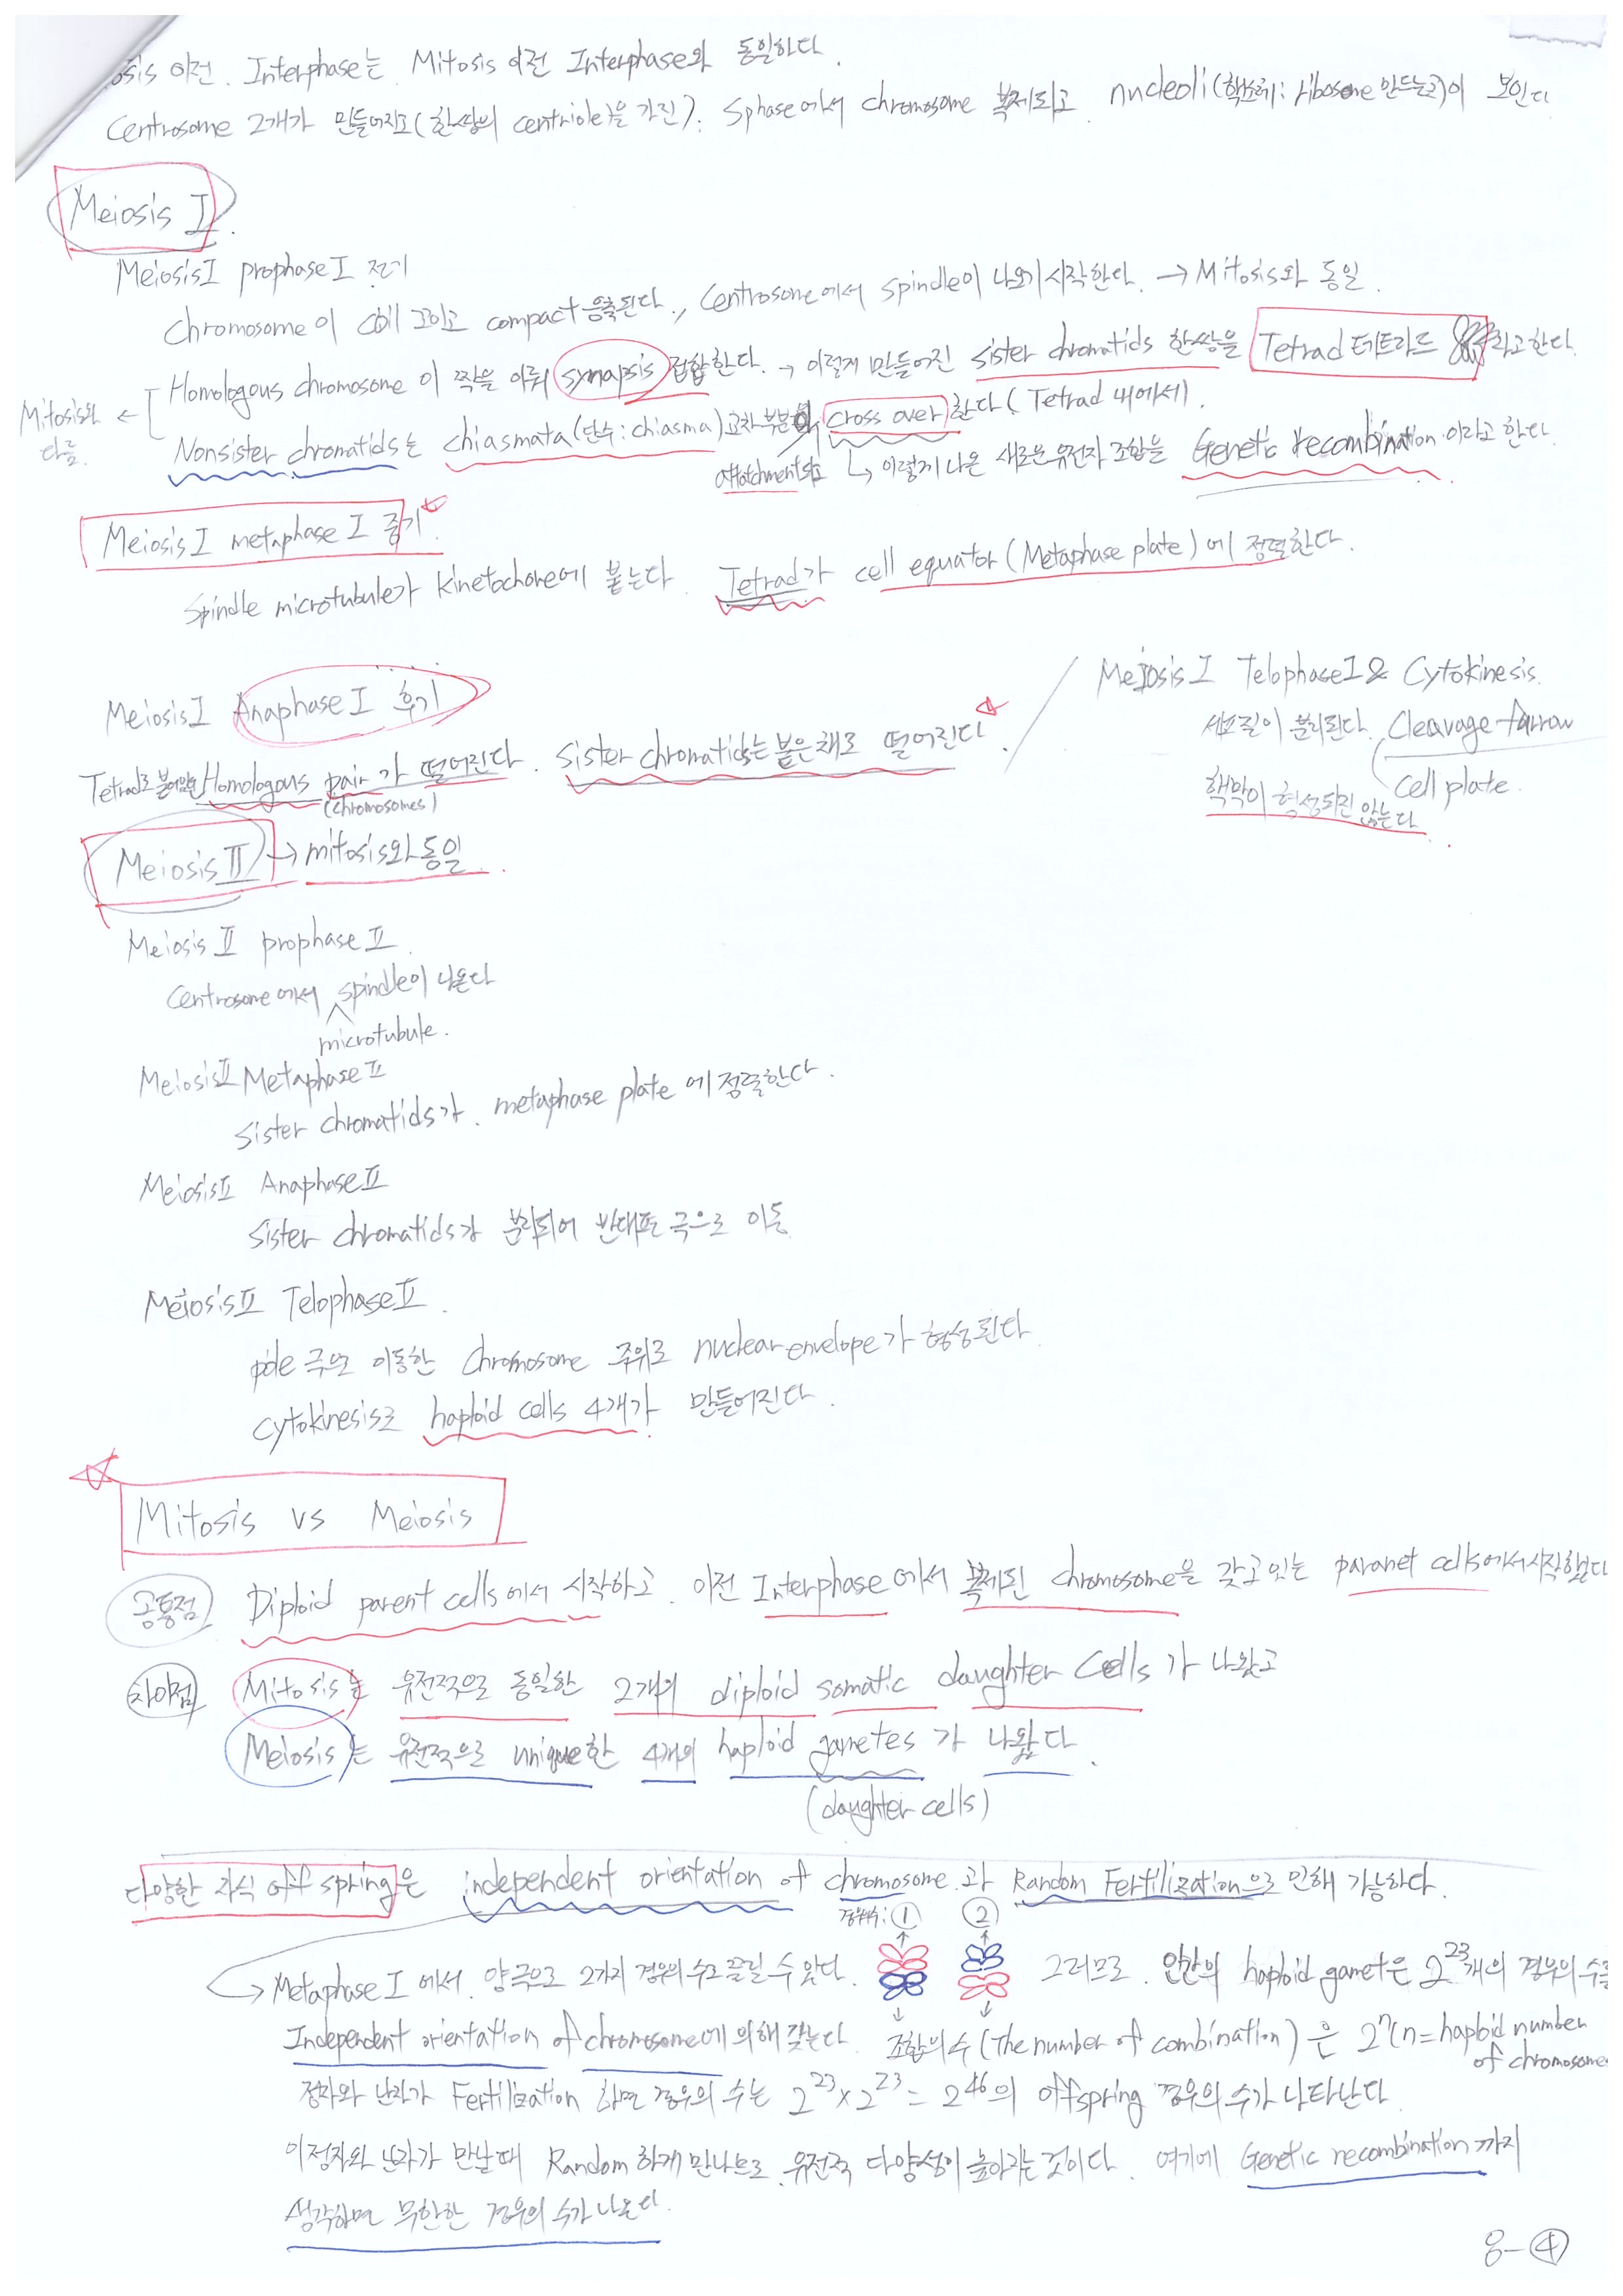 osis 이전. Interphase는 Mitosis 이전 Interphase와 동일하다.
Centrosome 2개가 만들어지고(한쌍의 centriole을 가진). Sphase에서 chromosome 복제되고 nucleoli(핵소체: ribosome 만드는곳)이 보인다
Meiosis I.
Meiosis I prophase I 전기
Chromosome이 coil 꼬이고 compact 응축된다., Centrosome에서 spindle이 나오기시작한다. → Mitosis와 동일.
Homologous chromosome이 짝을 이뤄 synapsis 접합한다. → 이렇게 만들어진 sister chromatids 한쌍을 Tetrad 테트라드 라고한다.
Mitosis와 다름. ←
Nonsister chromatids는 chiasmata(단수: chiasma) 교차부분 cross over 한다 (Tetrad 내에서).
↳ 이렇게 나온 새로운 유전자 조합을 Genetic recombination 이라고 한다.
Meiosis I metaphase I 중기.
Spindle microtubule가 kinetochore에 붙는다. Tetrad가 cell equator (Metaphase plate)에 정렬한다.
Meiosis I Anaphase I 후기
Tetrad로 붙어있던 Homologous pair가 떨어진다. Sister chromatids는 붙은채로 떨어진다.
(chromosomes)
Meiosis I Telophase I & Cytokinesis.
세포질이 분리된다. Cleavage furrow
Cell plate.
핵막이 형성되진 않는다.
Meiosis II → mitosis와 동일.
Meiosis II prophase II.
Centrosome에서 spindle이 나온다
microtubule.
Meiosis II Metaphase II
Sister chromatids가. metaphase plate에 정렬한다.
Meiosis II Anaphase II
Sister chromatids가 분리되어 반대편 극으로 이동
Meiosis II Telophase II.
pole 극으로 이동한 chromosome 주위로 nuclear envelope가 형성된다.
cytokinesis로 haploid cells 4개가 만들어진다.
Mitosis vs Meiosis
공통점 Diploid parent cells에서 시작하고. 이전 Interphase에서 복제된 chromosome을 갖고있는 paranet cells에서시작했다
차이점 Mitosis는 유전적으로 동일한 2개의 diploid somatic daughter Cells가 나왔고
Meiosis는 유전적으로 unique한 4개의 haploid gametes가 나왔다.
(daughter cells)
다양한 자식 off spring은 independent orientation of chromosome.과 Random Fertilization으로 인해 가능하다.
경우의수: ① ②
→ Metaphase I에서. 양극으로 2가지 경우의 수로 끌릴 수 있다. 그러므로. 인간의 haploid gamet은 2²³개의 경우의 수를
Independent orientation of chromosome에 의해 갖는다. 조합의 수 (The number of combination)은 2ⁿ (n=haploid number of chromosome
정자와 난자가 Fertilization 하면 경우의 수는 2²³×2²³ = 2⁴⁶의 offspring 경우의 수가 나타난다.
이 정자와 난자가 만날때 Random하게 만나므로 유전적 다양성이 높아지는 것이다. 여기에 Genetic recombination 까지
생각하면 무한한 경우의 수가 나온다.
8-④